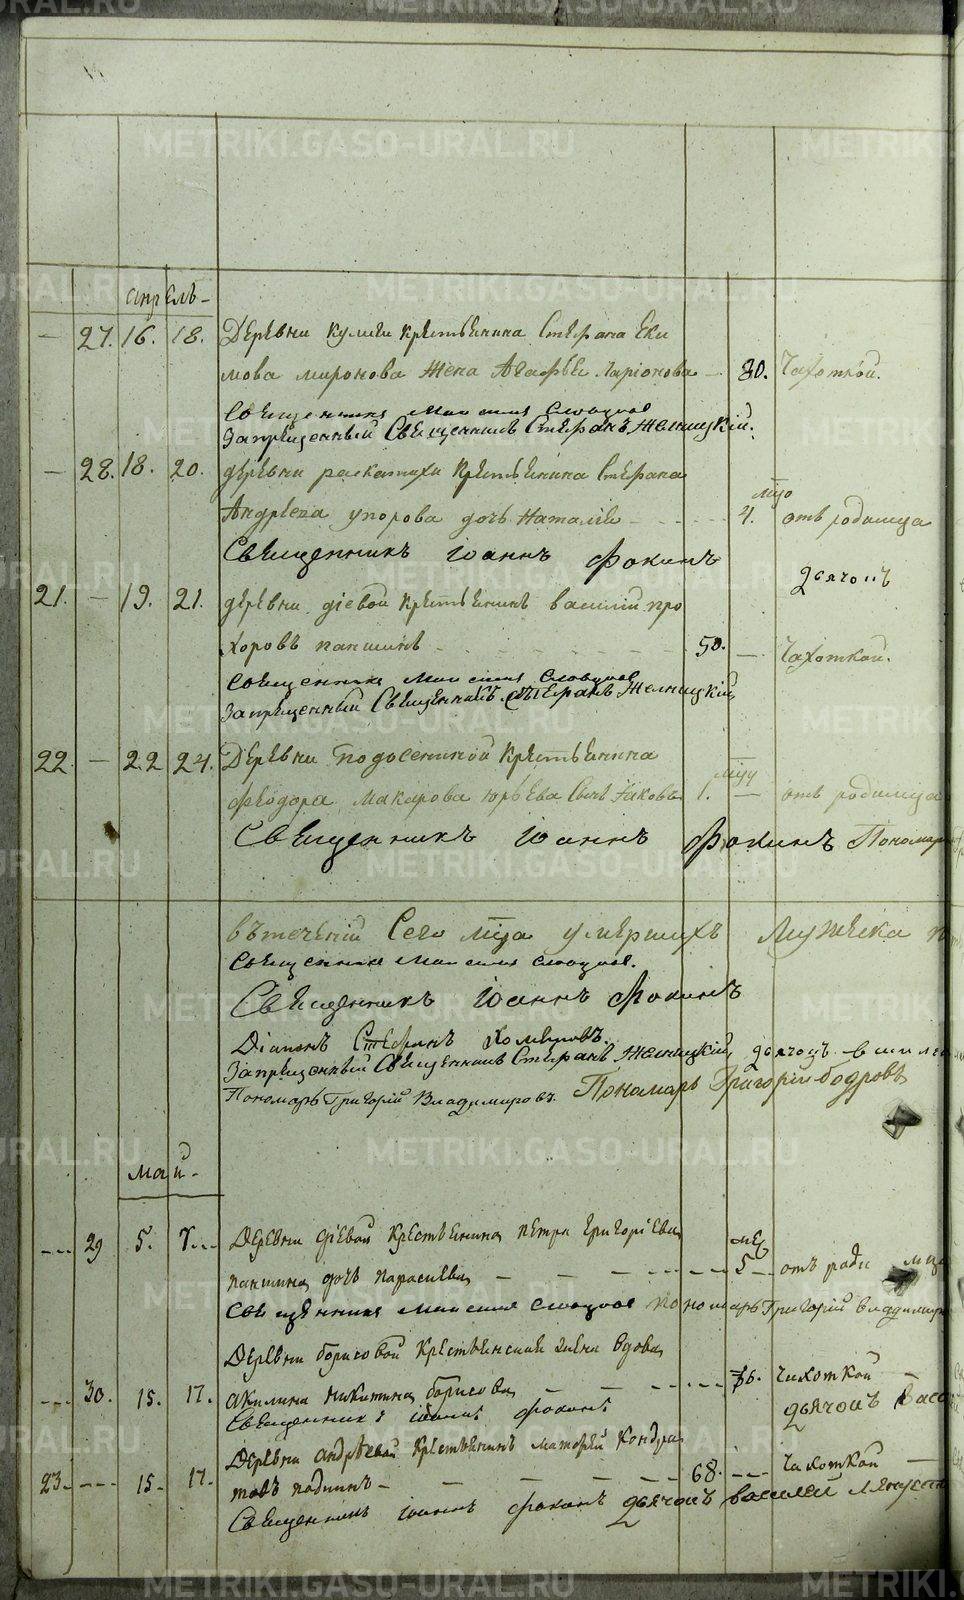 апрель
27. 16. 18. Деревни кулиги крестьянина Стефана Еки
мова миронова жена Агафья Ларіонова 30. Чахоткой.
Священникъ Максимъ Словцовъ
Запрещенный Священникъ Стефанъ Желницкій.
28. 18. 20. деревни раскатихи крестьянина Стефана
Андреева упорова дочь Наталія 4. мцо отъ родимца
Священникъ Іоаннъ Фокинъ дьячокъ
21. 19. 21. деревни діевой крестьянинъ василій про
хоровъ паншинъ 50. Чахоткой.
Священникъ Максимъ Словцовъ
Запрещенный Священникъ Стефанъ Желницкій
22. 22 24. Деревни Подосениной крестьянина
феодора макарова юрьева Сынъ Іаковъ 1. отъ родимца
Священникъ Іоаннъ Фокинъ Пономарь
въ теченіи Сего мца умершихъ Мужеска
Священникъ Максимъ Словцовъ.
Священникъ Іоаннъ Фокинъ
Діаконъ Стефанъ
Запрещенный Священникъ Стефанъ Желницкій дьячокъ
Пономарь Григорій Владимировъ. Пономарь Григорій бодровъ
май
29 5. 7. Деревни діевой крестьянина петра григорьева
паншина дочь парасковья 5 отъ роди мца
Священникъ Максимъ Словцовъ пономарь Григорій владимиръ
Деревни борисовой Крестьянская жена вдова
30. 15. 17. акилина никитина борисова 36. чахоткой
Священникъ іоаннъ фокинъ дьячокъ Васи
Деревни андреевой крестьянинъ матфей кондра
23. 15. 17. товъ 68. чахоткой
Священникъ іоаннъ фокинъ дьячокъ василей
METRIKI.GASO-URAL.RU